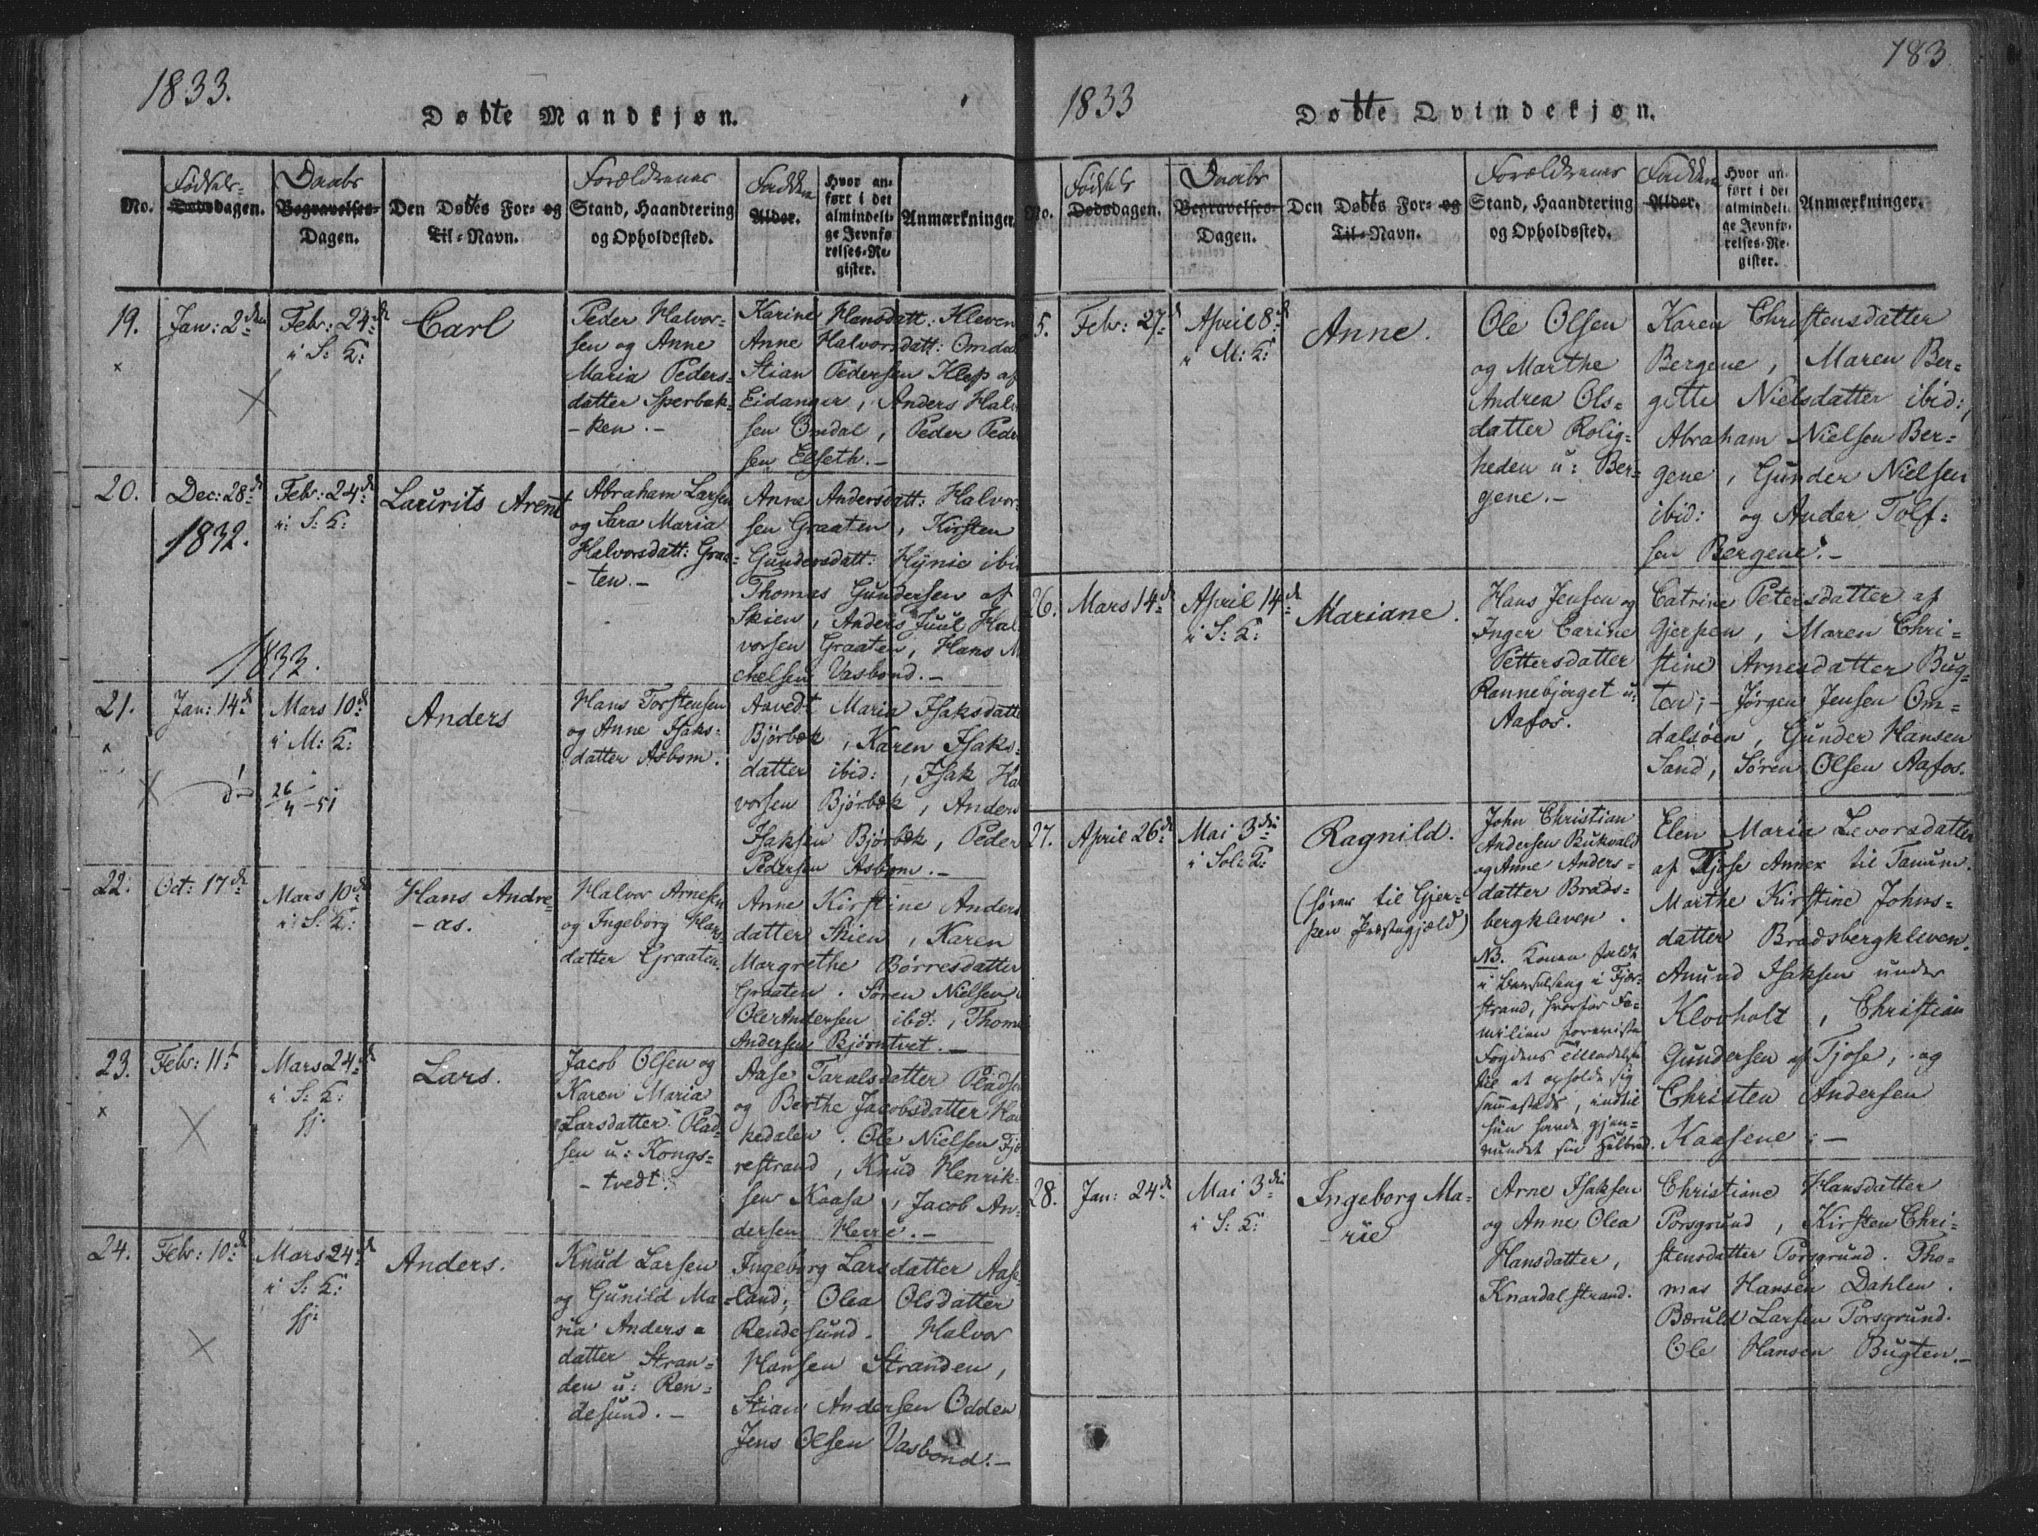 1833.
Dødte Mandkjøn.
No.
Fødsels=
Dødsdagen.
Daabs
Begravelses=
Dagen.
Den Dødtes For= og
Til=Navn.
Forældrenes
Stand, Haandtering
og Opholdssted.
Fadderne
Alder.
Hvor an=
ført i det
almindeli=
ge Jevnfø=
relses=Re=
gister.
Anmærkninger.
19.
Jan: 2den
Febr: 24de
i S: K:
Carl
Peder Halvor=
sen og Anne
Maria Peders=
datter Sperbak=
- ken. -
Karine Hansdatt: Kleven
Anne Halvorsdatt: Omdal
Stian Pedersen Klep af
Eidanger, Anders Halv
sen Omdal, Peder Peder
sen Elseth. -
20.
Dec: 28de
1832.
Feb: 24de
i S: K:
Laurits Arent
Abraham Larsen
og Sara Maria
Halvorsdatt: Graa=
- ten. -
Anne Andersdatt: Halvor=
sen Graaten, Kirsten
Gundersdatt: Hynie ibi
Thomas Gundersen af
Skien, Anders Juul Hal
vorsen Graaten, Hans Mi
chelsen Vasbond. -
1833.
21.
Jan: 14de
Mars 10de
i M: K:
26/4 - 51
Anders
Hans Torstensen
og Anne Isaks=
datter Asbom.
Aavedt Maria Isaksdatte
Bjørbæk, Karen Isaks=
datter ibid:, Isak Hal
vorsen Bjørbæk, Anders
Isaksen Bjørbæk, Peder
Pedersen Asbom. -
22.
Oct: 17de
Mars 10de
i S: K:
Hans Andre=
- as.
Halvor Arnesen
og Ingeborg Hans=
datter Graaten.
Anne Kirstine Anders
datter Skien, Karen
Margrethe Børresdatter
Graaten. Søren Nielsen
Ole Andersen ibid:, Thom
Andersen Bjørntvet. -
23.
Febr: 11te
Mars 24de
i S: K:
hj:
Lars.
Jacob Olsen og
Karen Maria
Larsdatter Plad=
sen u: Kongs=
- tvedt.
Aase Taralsdatter Pladsen
og Berthe Jacobsdatter Hau
kedalen. Ole Nielsen Fjæ
restrand, Knud Henrik=
sen Kaasa, Jacob An=
dersen Herre. -
24.
Febr: 10de
Mars 24de
i S: K:
hj:
Anders.
Knud Larsen
og Gunild Ma=
ria Anders=
datter Stran=
den u: Ren=
desund. -
Ingeborg Larsdatter Aase
land; Olea Olsdatter
Rendesund. Halvor
Hansen Stranden,
Stian Andersen Odden
Jens Olsen Vasbond. -
183.
1833
Dødte Qvindekjøn.
No.
Fødsels
Dødsdagen.
Daabs
Begravelses=
Dagen.
Den Dødtes For= og
Til=Navn.
Forældrenes
Stand, Haandtering
og Opholdssted.
Fadderne
Alder.
Hvor an=
ført i det
almindeli=
ge Jevnfø=
relses=Re=
gister.
Anmærkninger.
25.
Febr: 27de
April 8de
i M: K:
Anne.
Ole Olsen
og Marthe
Andrea Ols=
datter Rolig=
heden u: Ber=
gene. -
Karen Christensdatter
Bergene, Maren Ber=
gitte Nielsdatter ibid:,
Abraham Nielsen Ber=
gene, Gunder Nielsen
ibid: og Ander Tolf=
sen Bergene. -
26.
Mars 14de
April 14de
i S: K:
Mariane.
Hans Jensen og
Inger Carine
Pettersdatter
Rønnebjerget u:
Aafos.
Catrine Petersdatter af
Gjerpen, Maren Chri=
stine Arnesdatter Bug=
ten; - Jørgen Jensen Om=
dalsøen, Gunder Hansen
Sand, Søren Olsen Aafos.
27.
April 26de
Mai 3die
i Sol: K:
Ragnild.
(hører til Gjer=
pen Præstegjæld)
John Christian
Andersen Bukvald
og Anne Anders=
datter Brads=
bergkleven.
NB. Konen faldt
i Barselseng i Fjær=
strand, hvorfor Fa=
milien
Fogdens Tilladelse
til at opholde sig
sammesteds, indtil
hun havde gjen=
vundet sin Helbred.
Elen Maria Levorsdatter
af Tjose Annex til Tanum.
Marthe Kirstine Johns=
datter Bradsbergkleven.
Amund Isaksen under
Klovholt, Christian
Gundersen af Tjose, og
Christen Andersen
Kaasene. -
28.
Jan: 24de
Mai 3die
i S: K:
Ingeborg Ma=
- rie
Arne Isaksen
og Anne Olea
Hansdatter,
Knardalstrand.
Christiane Hansdatter
Porsgrund, Kirsten Chri=
stensdatter Porsgrund. Tho=
mas Hansen Dahlen.
Bæruld Larsen Porsgrund.
Ole Hansen Bugten. -